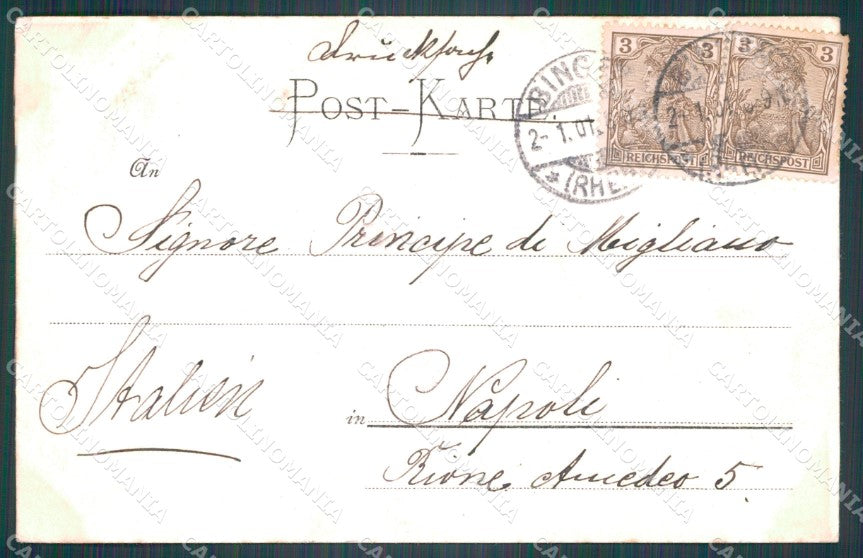 Drucksache
POST-KARTE.
3 3
REICHSPOST REICHSPOST
BINGEN
2-1.01.
*(RHEIN)
An
Signore Principe di Migliano
Italien
in Napoli
Rione Amedeo 5.
CARTOLINOMANIA